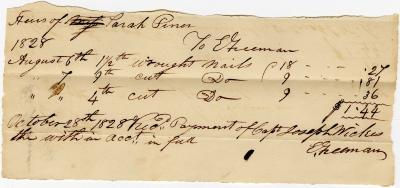 Heirs of Sarah Piner
1828 To E Freeman
August 6th 1½ th wrought nails @ 18 - - - .27
" 7 9th cut Do 9 - - - 81
" " 4th cut Do 9 - - - 36
$1.44
October 28th 1828 Recd Payment of Capt Joseph Wickes
the with in acct in full
E Freeman